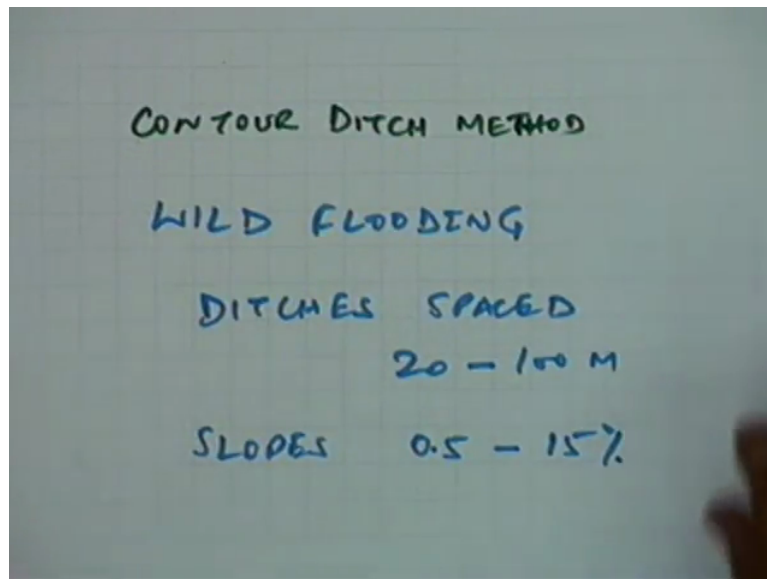 CONTOUR DITCH METHOD
WILD FLOODING
DITCHES SPACED
20 - 100 M
SLOPES 0.5 - 15%